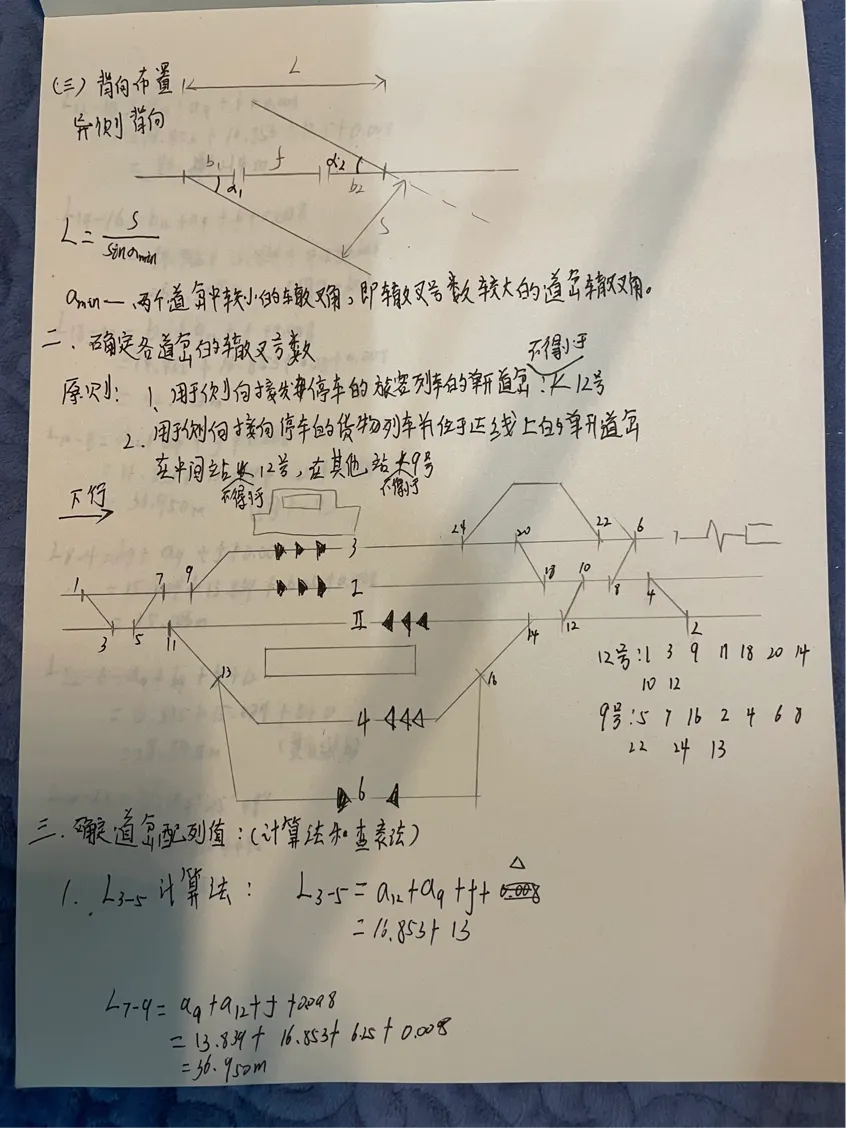 (三) 背向布置
L
异侧背向
b₁ f α₂
α₁ b₂
S
L = S/sinαmin
αmin — 两个道岔中较小的辙叉角,即辙叉号数较大的道岔辙叉角。
二、确定各道岔的辙叉号数
不得小于
原则: 1、用于侧向接发停车的旅客列车的单开道岔: 12号
2. 用于侧向接向停车的货物列车并位于正线上的单开道岔
在中间站 12号,在其他站 9号
不得小于 不得小于
下行
24 20 22 6
3
1 7 9 I 18 10 8 4
3 5 11 II 14 12 2
12号: 1 3 9 11 18 20 14
10 12
13 16
9号: 5 7 16 2 4 6 8
22 24 13
4
6
三. 确定道岔配列值: (计算法和查表法)
1. L₃₋₅ 计算法: L₃₋₅ = a₁₂ + a₉ + f + Δ
= 16.853 + 13
L₇₋₉ = a₉ + a₁₂ + f + 0.008
= 13.839 + 16.853 + 6.25 + 0.008
= 36.950m